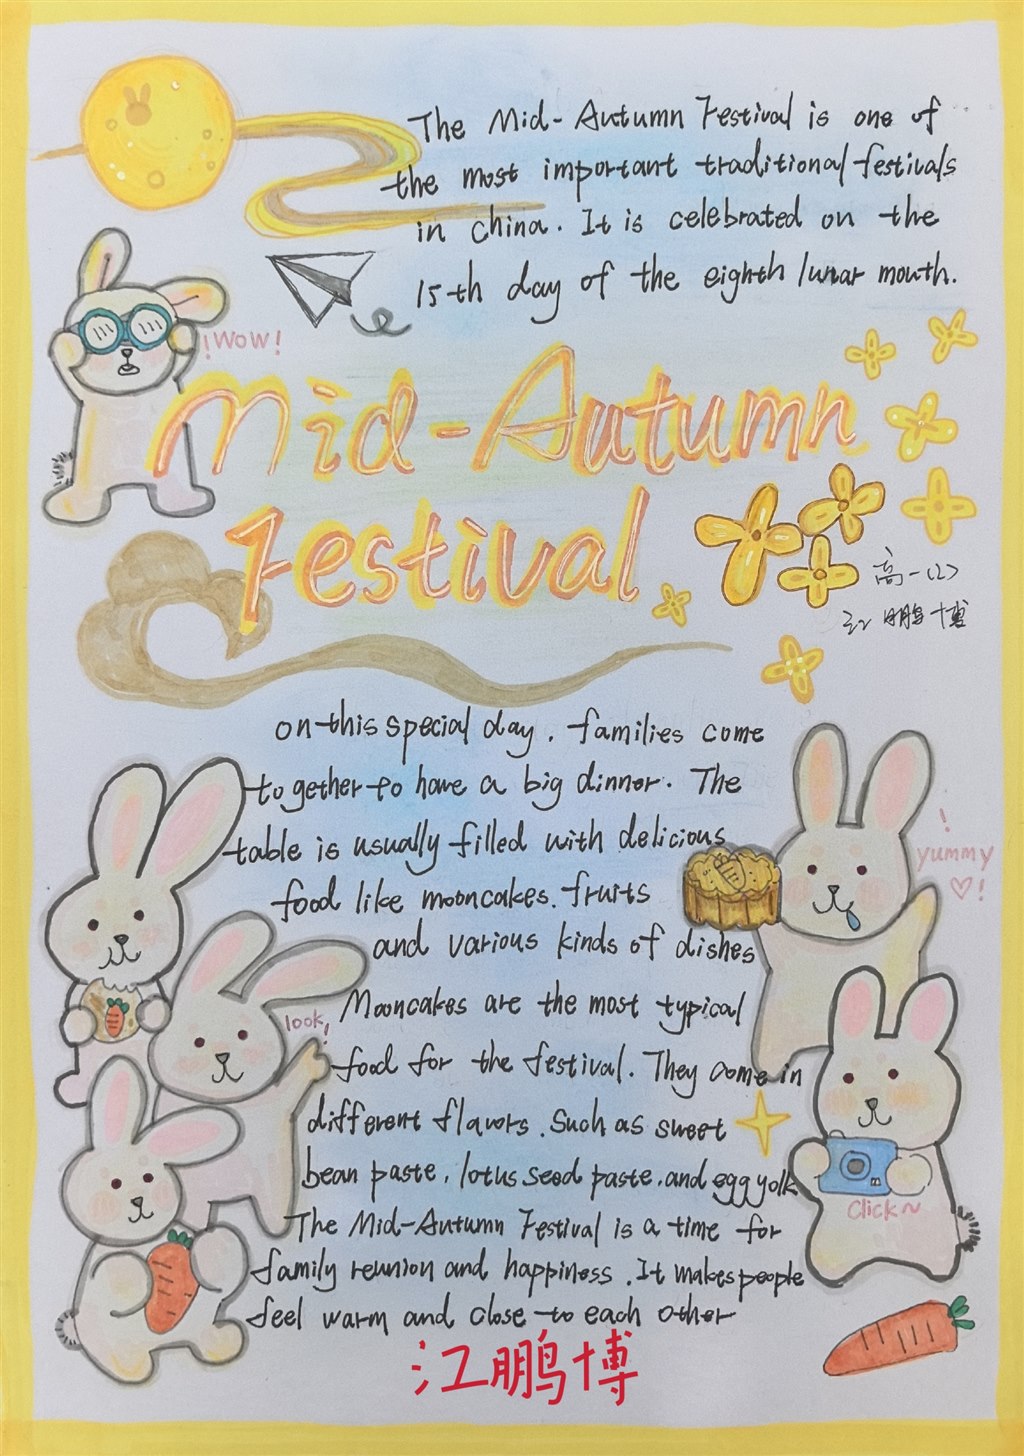 The Mid-Autumn Festival is one of
the most important traditional festivals
in china. It is celebrated on the
15th day of the eighth lunar mouth.
!Wow!
Mid-Autumn
Festival
高一(2)
江鹏博
on this special day, families come
together to have a big dinner. The
table is usually filled with delicious
food like mooncakes. fruits
and various kinds of dishes
yummy
!
♡!
look!
Mooncakes are the most typical
food for the festival. They come in
different flavors. Such as sweet
bean paste, lotus seed paste, and egg yolk
Click~
The Mid-Autumn Festival is a time for
family reunion and happiness. It makes people
feel warm and close to each other
江鹏博